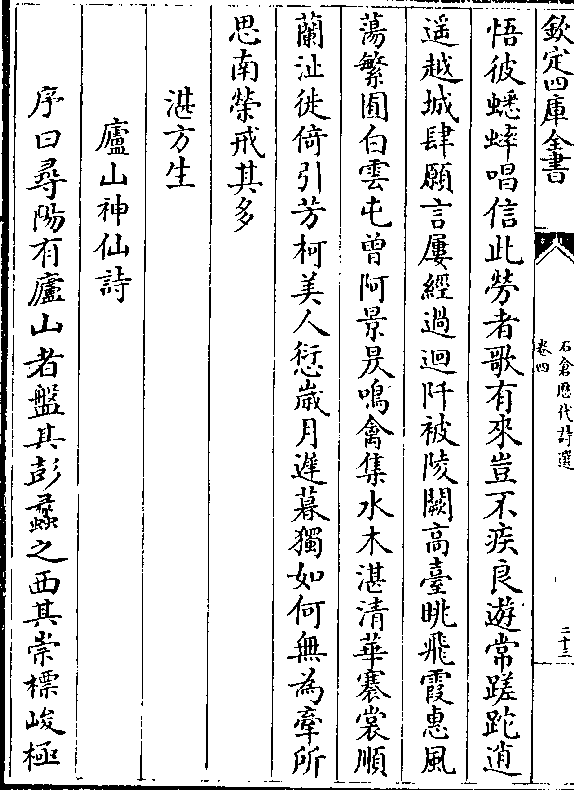 欽定四庫全書
石倉歷代詩選
卷四
二十三
悟彼蟋蟀唱信此勞者歌有來豈不疾良遊常蹉跎逍
遥越城肆願言屢經過迴阡被陵闕高臺眺飛霞惠風
蕩繁囿白雲屯曾阿景昃鳴禽集水木湛清華褰裳順
蘭沚徙倚引芳柯美人愆歲月遲暮獨如何無為牽所
思南榮戒其多
湛方生
廬山神仙詩
序曰尋陽有廬山者盤基彭蠡之西其崇標峻極